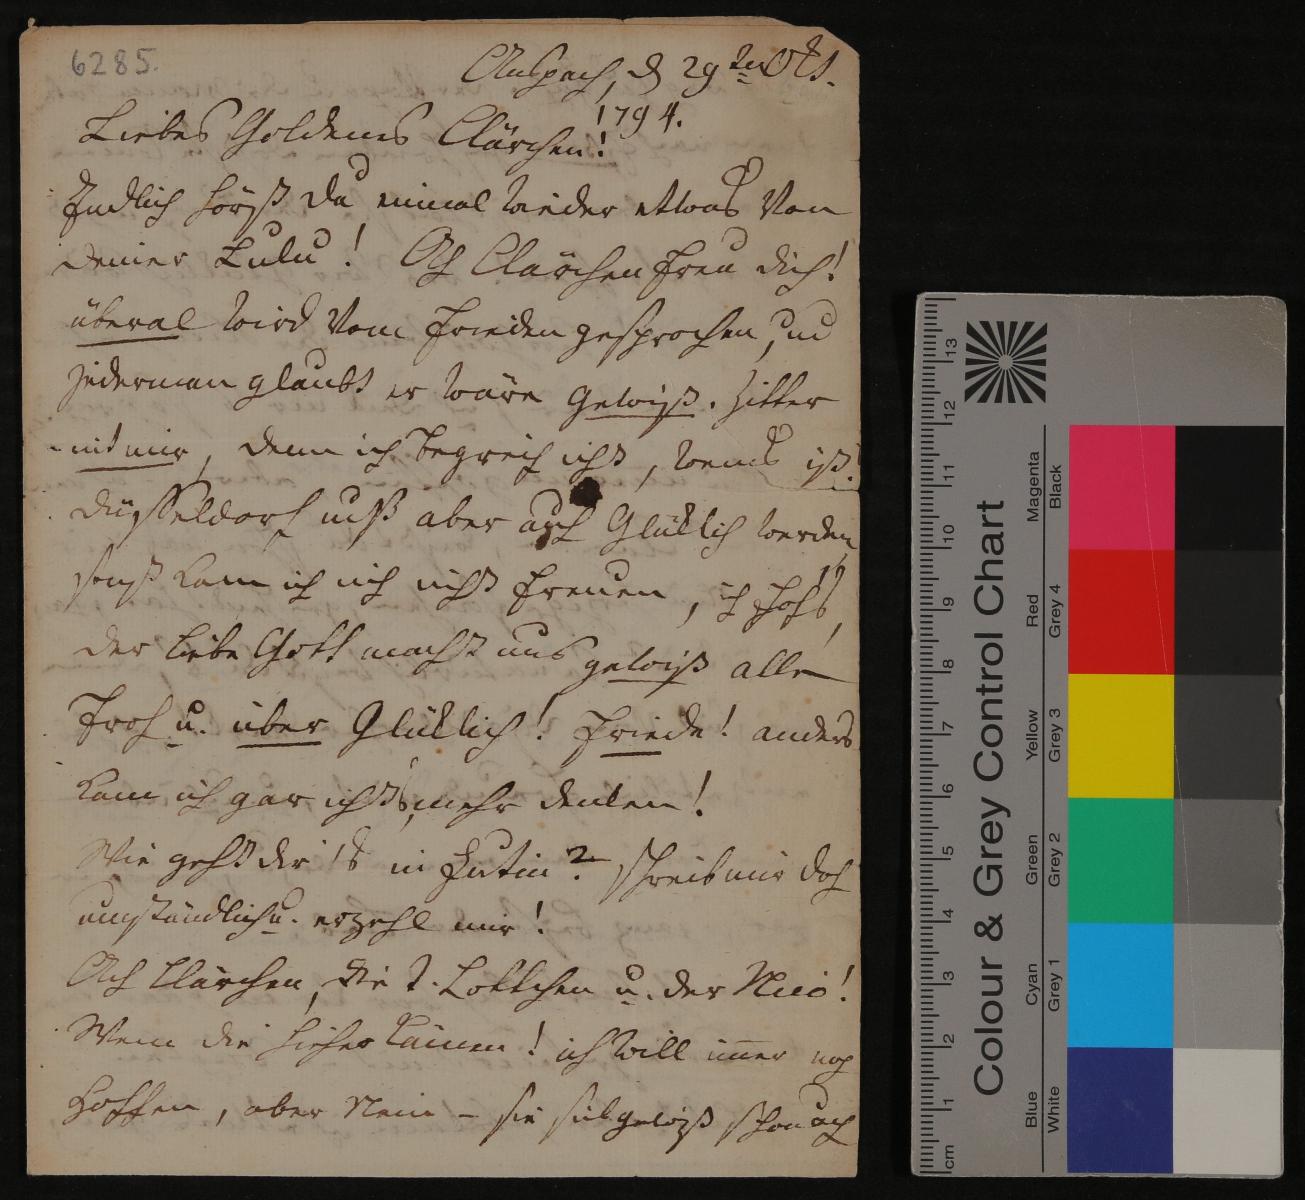 6285.
Anspach, d 29ten Okt.
1794.
Liebes Goldenes Clärchen!
Endlich hörst du einmal wieder etwas von
deiner Lulu! Ach Clärchen freu dich!
überal wird vom Frieden gesprochen, und
jederman glaubt er wäre gewiß. Zitter
mit mir, denn ich begreif nicht, wenns ist!
Düsseldorf muß aber auch Glüklich werden
sonst kann ich mich nicht freuen, ich hofs,
der liebe Gott macht uns gewiß alle
Froh u. über Glüklich! Friede! anders
kann ich gar nichts mehr denken!
Wie geht dir's in Eutin? schreib mir doch
umständlich u. erzehl mir!
Ach Clärchen, die T. Lottchen u. der
Wenn die hieher kämen! ich will immer noch
hoffen, aber Nein - sie sind gewiß schon
cm 1 2 3 4 5 6 7 8 9 10 11 12 13
Colour & Grey Control Chart
Blue Cyan Green Yellow Red Magenta
White Grey 1 Grey 2 Grey 3 Grey 4 Black